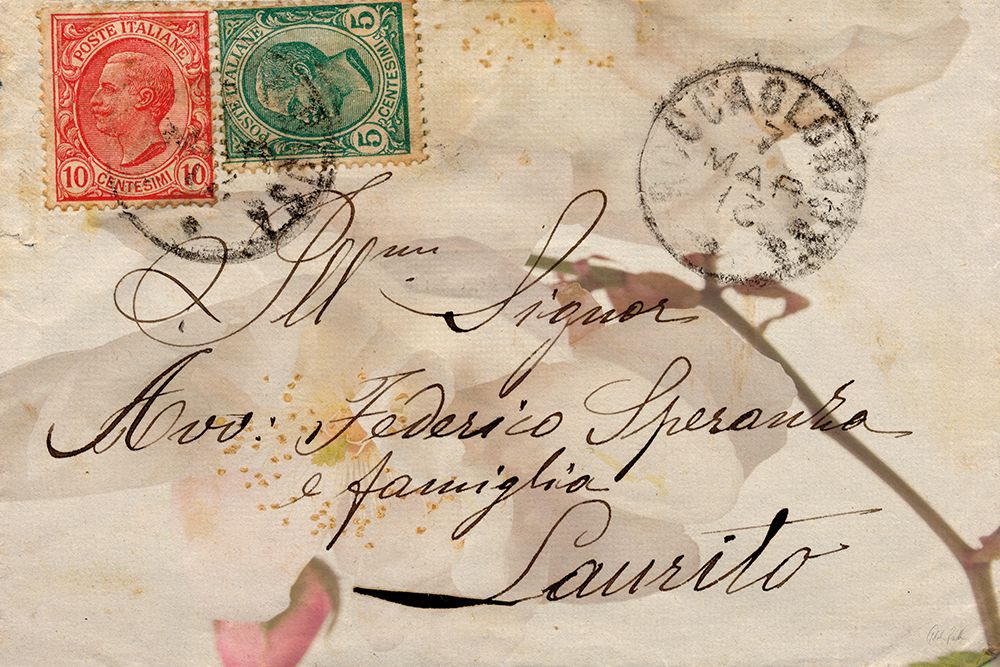 POSTE ITALIANE
10 CENTESIMI 10
POSTE ITALIANE
5 CENTESIMI 5
7
MAR
Ill mi Signor
Avv: Federico Speranza
e famiglia
Laurito